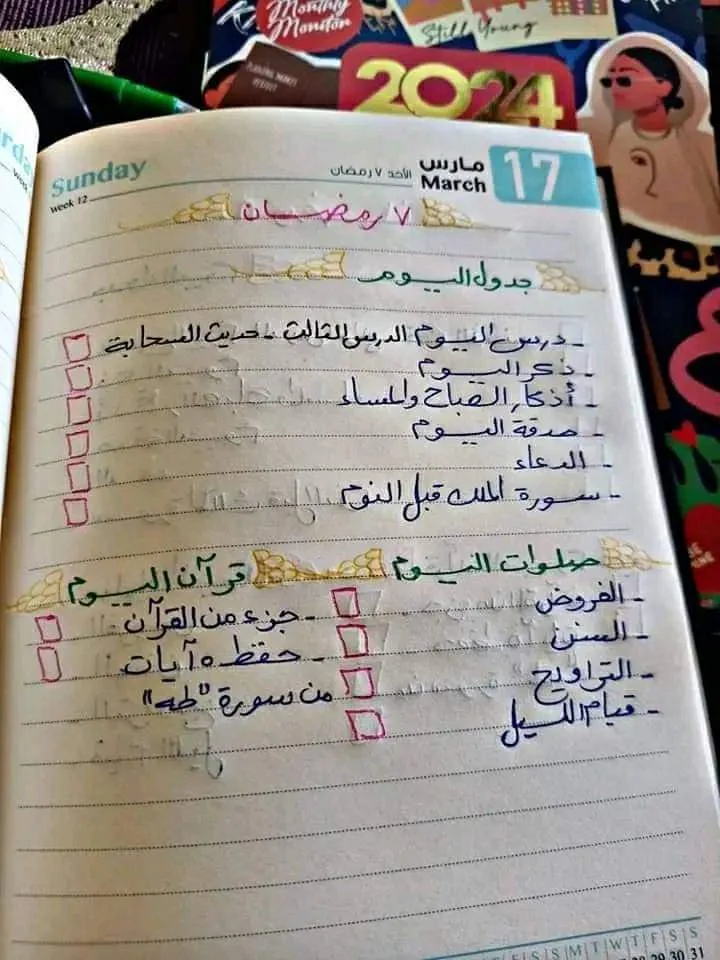 Monthly
Monitor
Still Young
2024
Sunday
week 12
الأحد ٧ رمضان
مارس
March
17
٧ رمضان
جدول اليوم
- درس اليوم الدرس الثالث - حديث السحابة
- ذكر اليوم
- أذكار الصباح والمساء
- صدقة اليوم
- الدعاء
- سورة الملك قبل النوم
صلوات اليوم
- الفروض
- السنن
- التراويح
- قيام الليل
قرآن اليوم
- جزء من القرآن
- حفظ ٥ آيات
من سورة "طه"
S S M T W T F S S
29 30 31